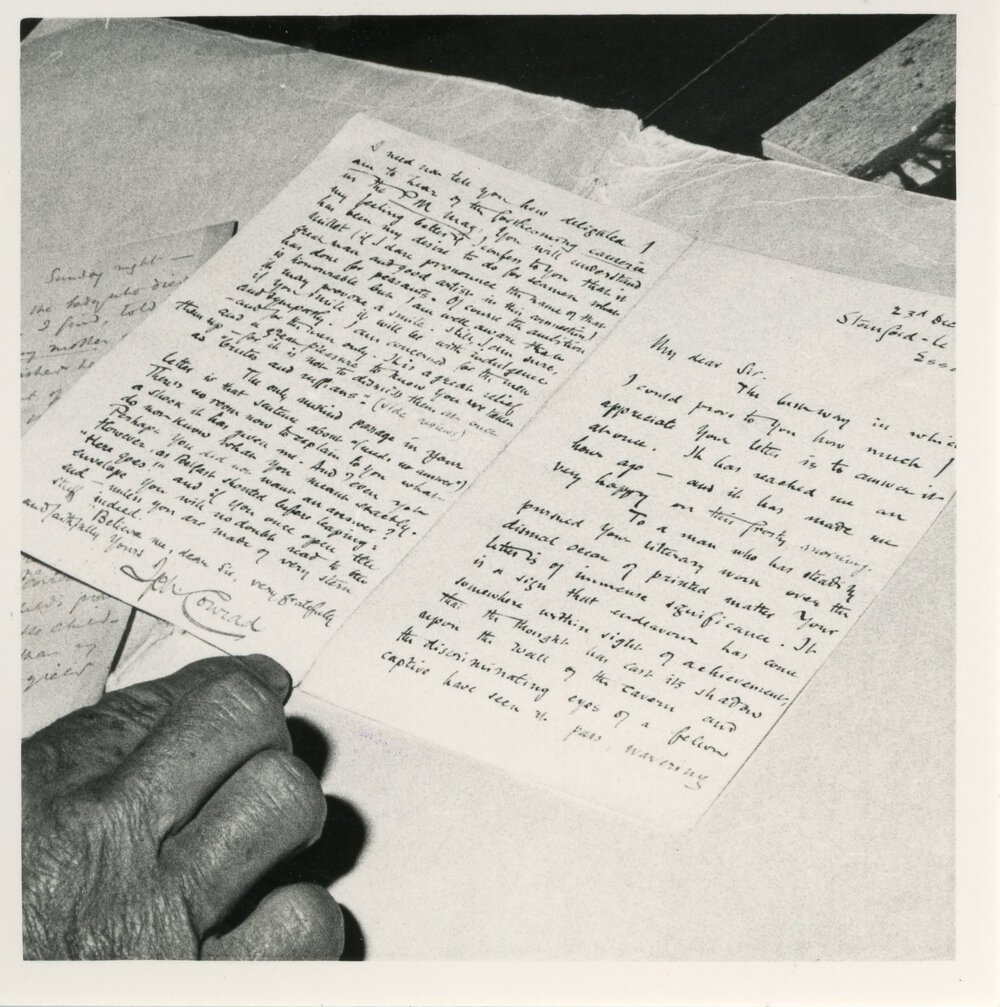 23d Dec
Stanford-le
Esse
My dear Sir.
The best way in which
I could prove to you how much I
appreciate your letter is to answer it
at once. It has reached me an
hour ago – and it has made me
very happy on this frosty morning.
To a man who has steadily
pursued your literary work over the
dismal ocean of printed matter your
letter is of immense significance. It
is a sign that endeavour has come
somewhere within sight of achievement,
that the thought has cast its shadow
upon the wall of the cavern and
the discriminating eyes of a fellow
captive have seen it pass, wavering
I need not tell you how delighted I
am to hear of the forthcoming causerie
in the P M Mag: You will understand
my feeling better if I confess to You that it
has been my desire to do for seamen what
Millet (if I dare pronounce the name of that
great man and good artist in this connection)
has done for peasants. Of course the ambition
is honourable but I am well aware that
it may provoke a smile. Still, I am sure,
if you smile it will be with indulgence
and sympathy. I am concerned for the men
– and for the men only. It is a great relief
and a great pleasure to know You have taken
them up – for it is not to dismiss them at once
as "brutes and ruffians." (vide reviews)
The only unkind passage in your
letter is that sentence about: (needs no answer)
There's no room now to explain to You what
a shock it has given me. And I even yet
do not know what you meant exactly.
Perhaps You did not want an answer?
However, as Belfast shouted before leaping:
Here goes! and if You once open the
envelope You will no doubt read to the
end – unless you are made of very stern
stuff indeed.
Believe me, dear Sir, very gratefully
and faithfully Yours
Jph Conrad
Sunday night –
the lady who died
I find, told
my mother